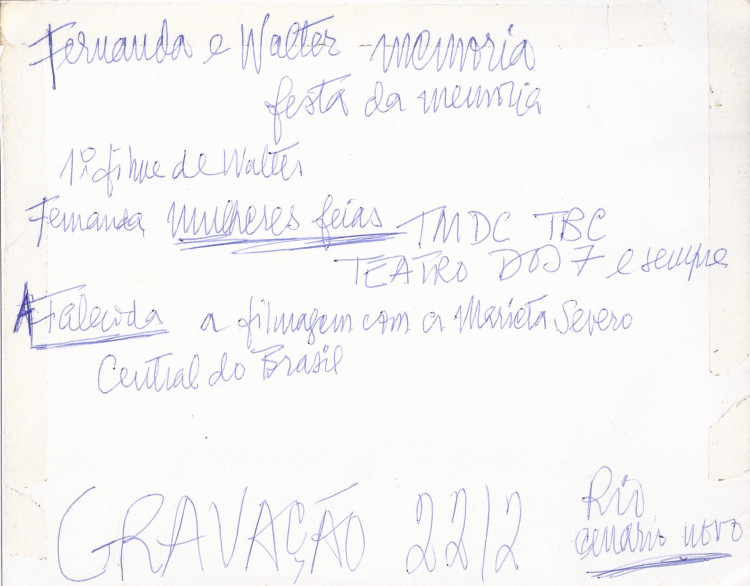 Fernanda e Walter - memoria
festa da memória
1º filme de Walter
Fernanda mulheres feias TMDC TBC
TEATRO DOS 7 e sempre
A Falecida a filmagem com a Marieta Severo
Central do Brasil
GRAVAÇÃO 22/2
Rio
cenário novo